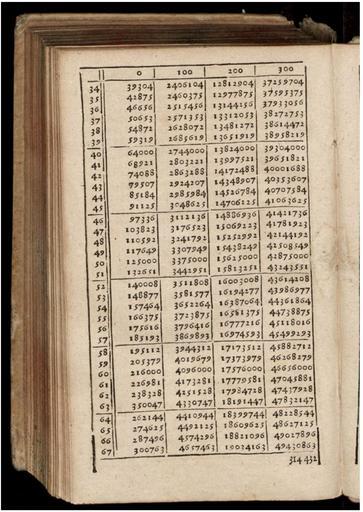 0 100 200 300
34 39304 2406104 12812904 37259704
35 42875 2460375 12977875 37595375
36 46656 2515456 13144256 37933056
37 50653 2571353 13312053 38272753
38 54872 2628072 13481272 38614472
39 59319 2685619 13651919 38958219
40 64000 2744000 13824000 39304000
41 68921 2803221 13997521 39651821
42 74088 2863288 14172488 40001688
43 79507 2924207 14348907 40353607
44 85184 2985984 14526784 40707584
45 91125 3048625 14706125 41063625
46 97336 3112136 14886936 41421736
47 103823 3176523 15069223 41781923
48 110592 3241792 15252992 42144192
49 117649 3307949 15438249 42508549
50 125000 3375000 15625000 42875000
51 132651 3442951 15813251 43243551
52 140008 3511808 16003008 43614208
53 148877 3581577 16194277 43986977
54 157464 3652264 16387064 44361864
55 166375 3723875 16581375 44738875
56 175616 3796416 16777216 45118016
57 185193 3869893 16974593 45499293
58 195112 3944312 17173512 45882712
59 205379 4019679 17373979 46268279
60 216000 4096000 17576000 46656000
61 226981 4173281 17779581 47045881
62 238328 4251528 17984728 47437928
63 350047 4330747 18191447 47832147
64 262144 4410944 18399744 48228544
65 274625 4492125 18609625 48627125
66 287496 4574296 18821096 49027896
67 300763 4657463 19034163 49430863
314432